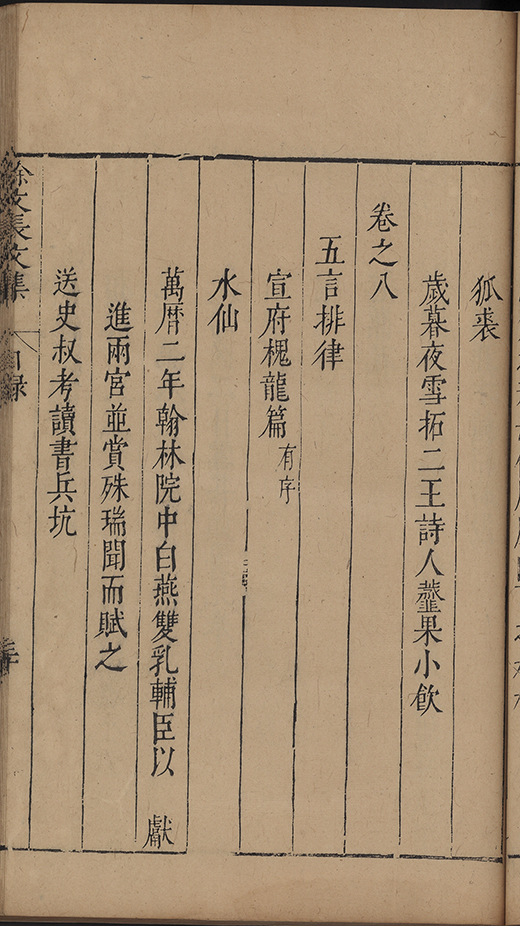 狐裘
歲暮夜雪拓二王詩人虀果小飲
卷之八
五言排律
宣府槐龍篇 有序
水仙
萬曆二年翰林院中白燕雙乳輔臣以 獻
進兩宮並賞殊瑞聞而賦之
送史叔考讀書兵坑
徐文長文集 目録